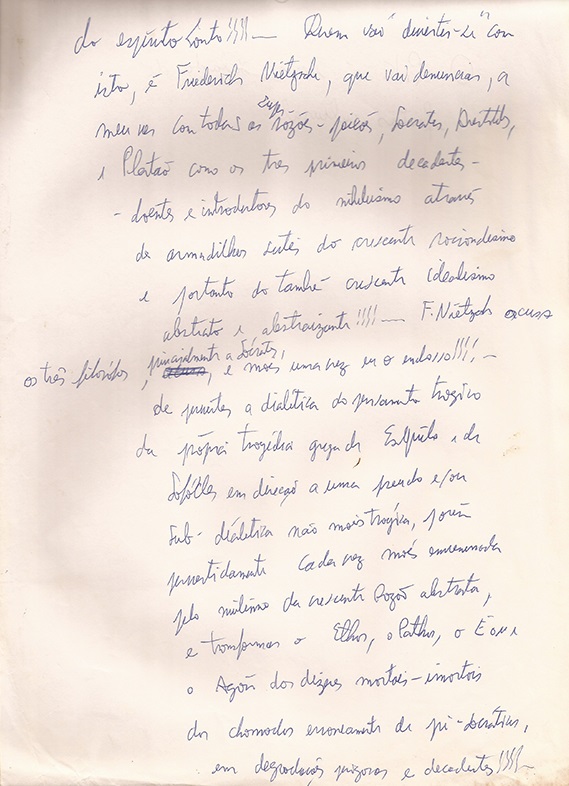 do espírito Santo!!!! — Quem vai "divertir-se" com
isto, é Friederich Nietzsche, que vai denunciar, a
meu ver com todas as suas razões - Sócrates, Aristóteles,
e Platão como os tres primeiros decadentes -
- doentes e introdutores do niilismo através
de armadilhas sutis do crescente racionalismo
e portanto do também crescente idealismo
abstrato e abstraizante!!!! — F. Nietzsch acusa
os três filósofos, principalmente a Sócrates, e mais uma vez eu o endosso!!!! -
de perverter a dialética do pensamento trágico
da própria tragédia grega de Esquilo e de
Sófocles em direção a uma pseudo e/ou
Sub-dialética não mais trágica, porém
pervertidamente cada vez mais envenenada
pelo niilismo da crescente Razão abstrata,
e transformar o Ethos, o Pathos, o Eon e
o Agon dos dizeres mortais-imortais
dos chamados erroneamente de pré-Socráticos,
em degradações e decadentes!!!!-